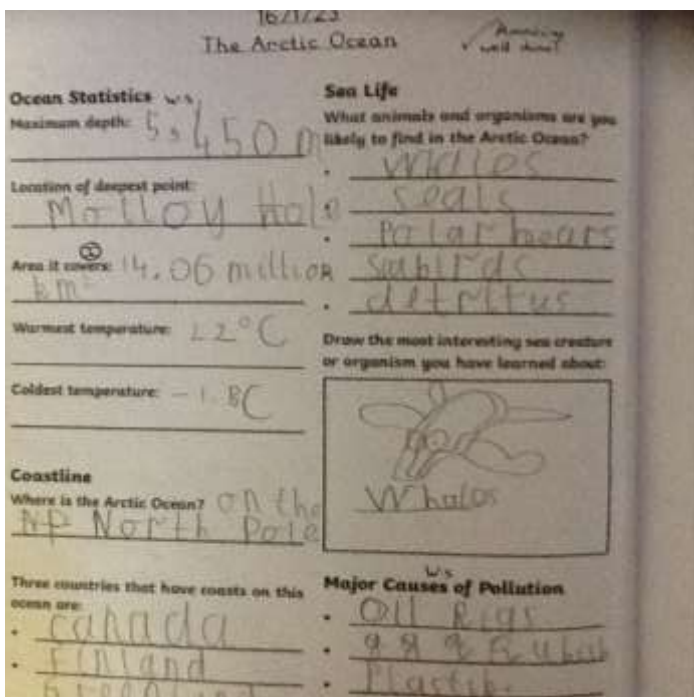 16/1/23
The Arctic Ocean
Amazing
well done!
Ocean Statistics ws
Maximum depth: 5,450 m
Location of deepest point:
Molloy Hole
Area it covers: 14.06 million
km²
Warmest temperature: 22°C
Coldest temperature: -1.8C
Coastline
Where is the Arctic Ocean? on the
NP North Pole
Three countries that have coasts on this
ocean are:
• canada
• Finland
Sea Life
What animals and organisms are you
likely to find in the Arctic Ocean?
• wales
• seals
• Polar bears
• sabirds
• detritus
Draw the most interesting sea creature
or organism you have learned about:
Whales
ws
Major Causes of Pollution
• Oil Rigs
•
• Plastic